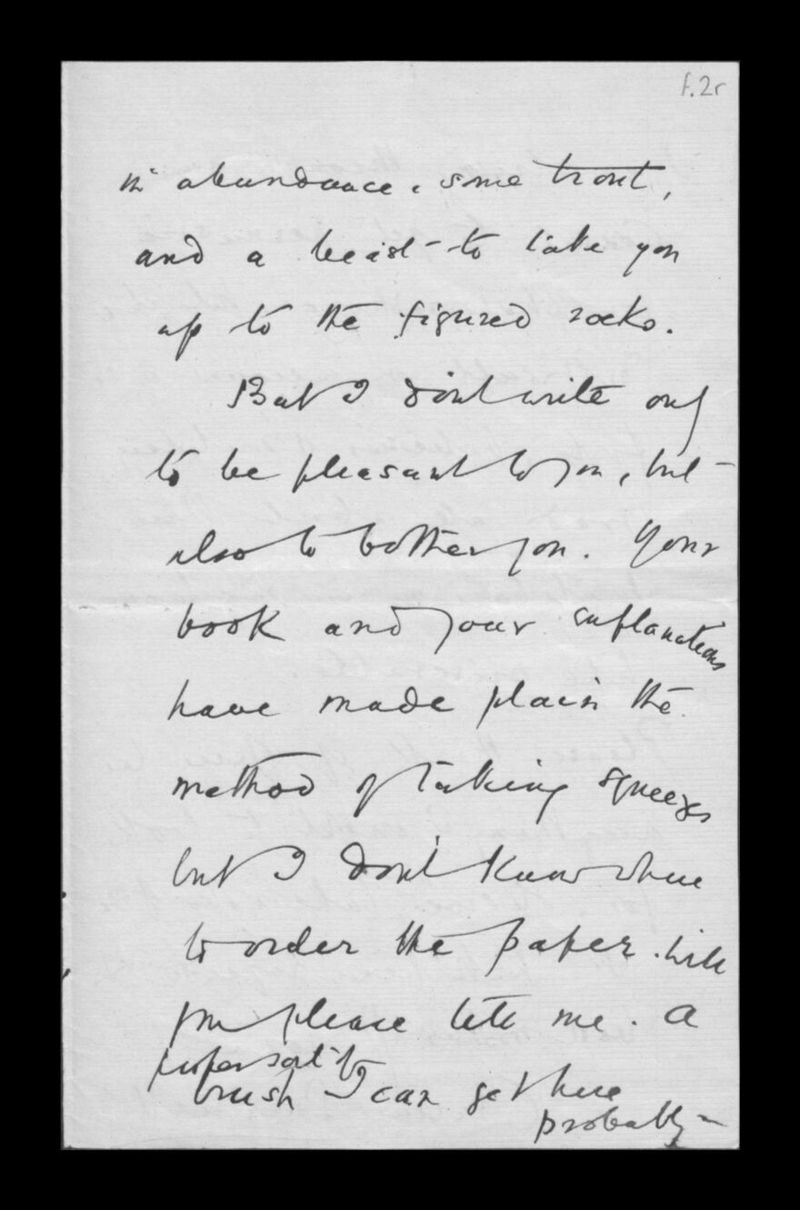 f.2r
in abundance, some trout,
and a beast to take you
up to the figured rocks.
But I don't write only
to be pleasant to you, but
also to bother you. Your
book and your explanations
have made plain the
method of taking squeezes
but I don't know where
to order the paper. Will
you please tell me. A
proper sort of
brush I can get here
probably –